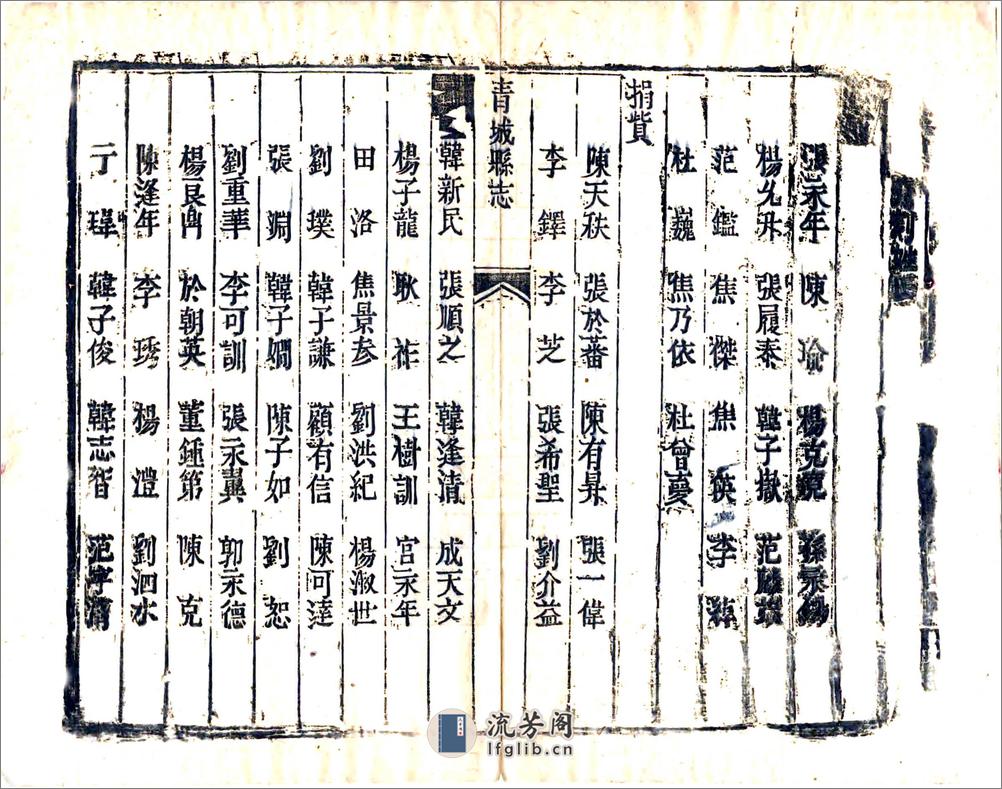 張永年 陳瑜 楊克寬
楊允升 張履泰 韓子嶽 范
范鑑 焦傑 焦瑛 李
杜巍 焦乃依 杜曾慶
捐貲
陳天秩 張於蕃 陳有昇 張一偉
李鐸 李芝 張希聖 劉介益
青城縣志
韓新民 張順之 韓逢清 成天文
楊子龍 耿祚 王樹訓 官永年
田洛 焦景參 劉洪紀 楊淑世
劉璞 韓子謙 顧有信 陳可達
張淵 韓子嫺 陳子如 劉恕
劉重華 李可訓 張永翼 郭永德
楊良 於朝英 董鍾第 陳克
陳逢年 李琇 楊澧 劉泗水
丁瑋 韓子俊 韓志智 范
流芳阁
lfglib.cn